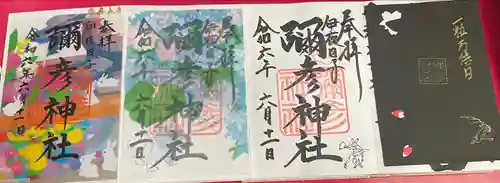 参拝
彌彦神社
令和六年六月十一日
奉拝
彌彦神社
令和六年
六月十一日
奉拝
彌彦神社
令和六年
六月十一日
一粒万倍日